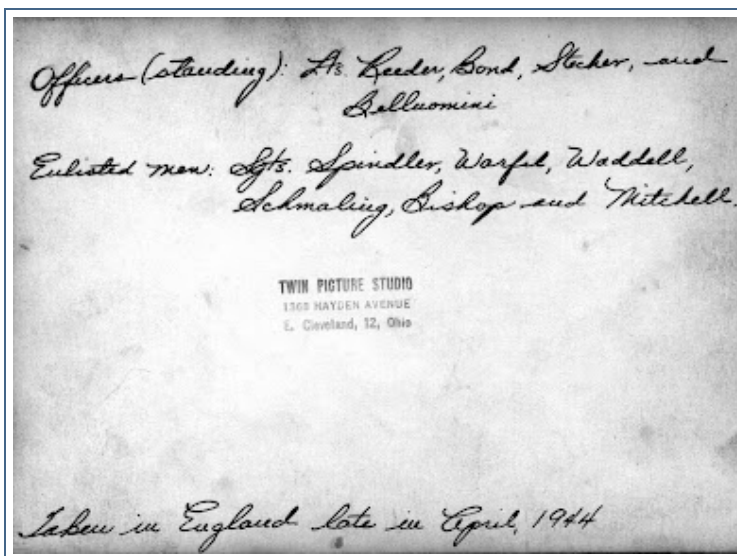 Officers (standing): Lts. Reeder, Bond, Stecher, and
Belluomini
Enlisted men: Sgts. Spindler, Warfel, Waddell,
Schmaling, Bishop and Mitchell.
TWIN PICTURE STUDIO
1363 HAYDEN AVENUE
E. Cleveland, 12, Ohio
Taken in England late in April, 1944